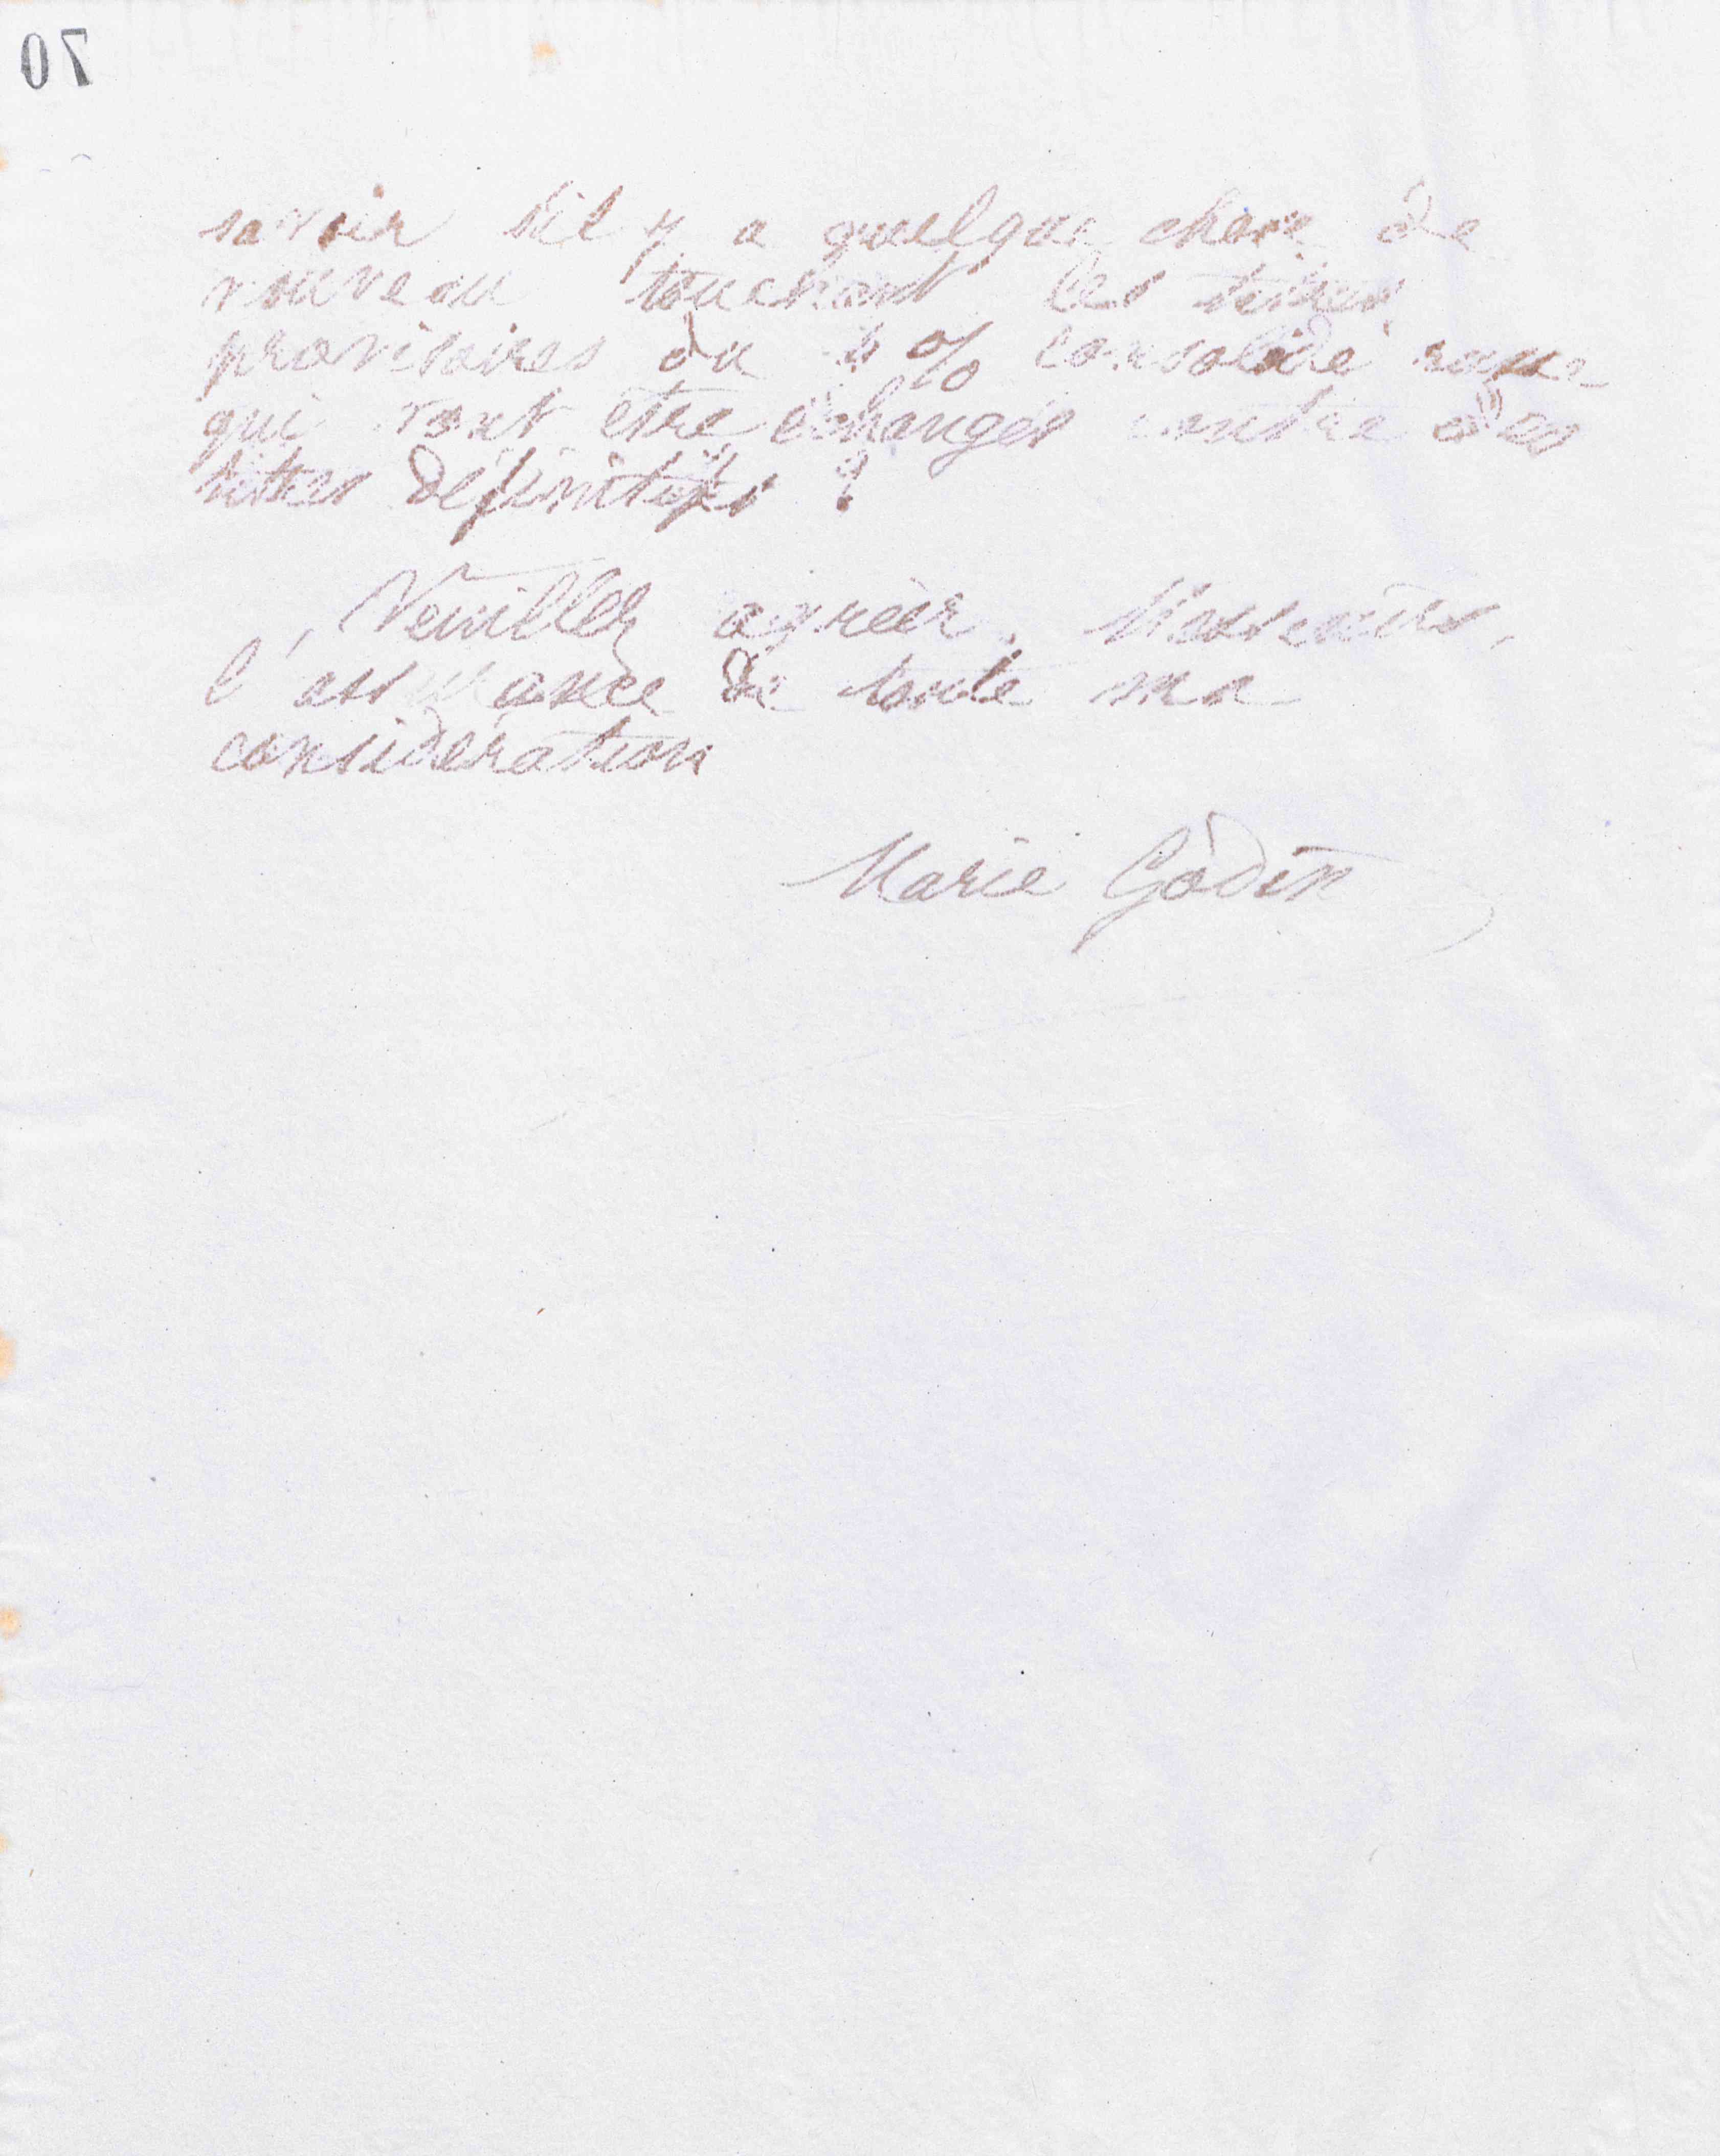 70
savoir s'il y a quelque chose de
nouveau touchant les titres
provisoires du 4 % consolidé russe
qui vont être échangés contre des
titres définitifs ?
Veuillez agréer, Messieurs,
l'assurance de toute ma
considération
Marie Godin